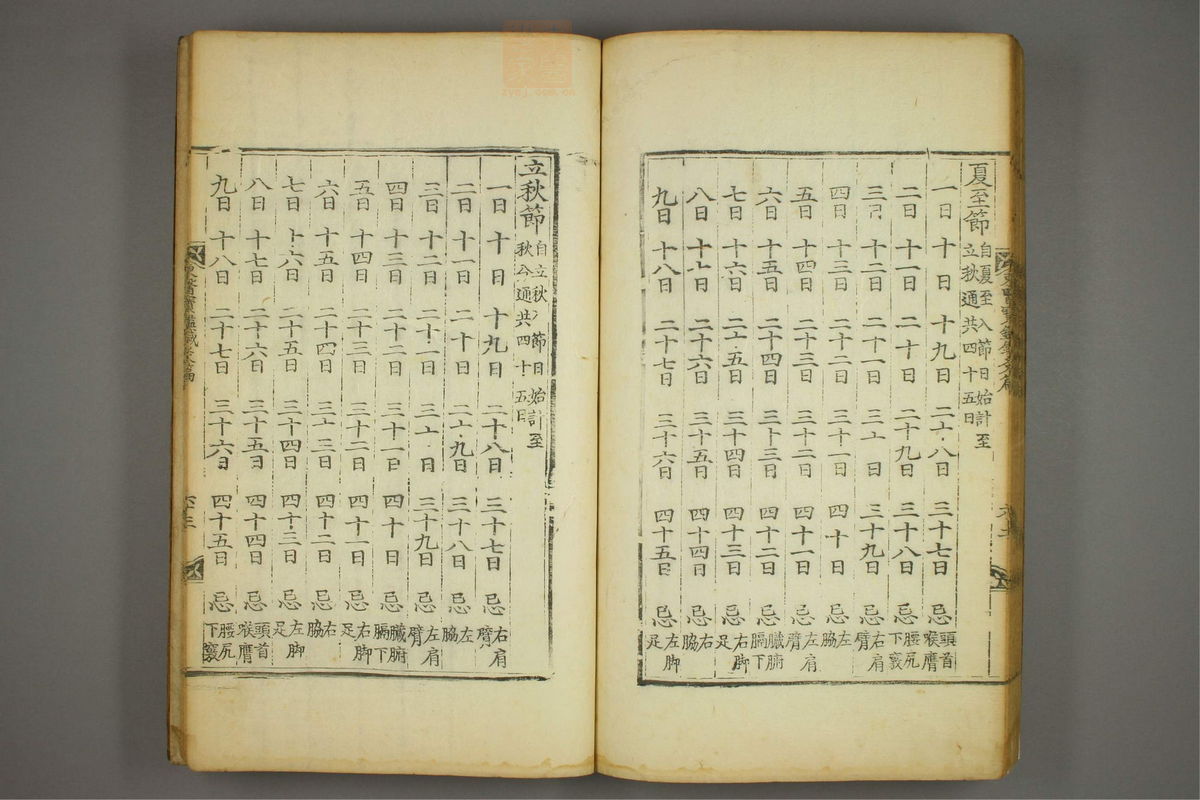 夏至節 自夏至入節日始計至立秋通共四十五日
一日 十日 十九日 二十八日 三十七日 忌 頭首喉膺
二日 十一日 二十日 二十九日 三十八日 忌 腰尻下竅
三日 十二日 二十一日 三十日 三十九日 忌 右肩臂
四日 十三日 二十二日 三十一日 四十日 忌 左脇
五日 十四日 二十三日 三十二日 四十一日 忌 左肩臂
六日 十五日 二十四日 三十三日 四十二日 忌 臟腑膈下
七日 十六日 二十五日 三十四日 四十三日 忌 右脚足
八日 十七日 二十六日 三十五日 四十四日 忌 右脇
九日 十八日 二十七日 三十六日 四十五日 忌 左脚足
立秋節 自立秋入節日始計至秋分通共四十五日
一日 十日 十九日 二十八日 三十七日 忌 右肩臂
二日 十一日 二十日 二十九日 三十八日 忌 左脇
三日 十二日 二十一日 三十日 三十九日 忌 左肩臂
四日 十三日 二十二日 三十一日 四十日 忌 臟腑膈下
五日 十四日 二十三日 三十二日 四十一日 忌 右脚足
六日 十五日 二十四日 三十三日 四十二日 忌 右脇
七日 十六日 二十五日 三十四日 四十三日 忌 左脚足
八日 十七日 二十六日 三十五日 四十四日 忌 頭首喉膺
九日 十八日 二十七日 三十六日 四十五日 忌 腰尻下竅
東醫寶鑑鍼灸篇
六十三